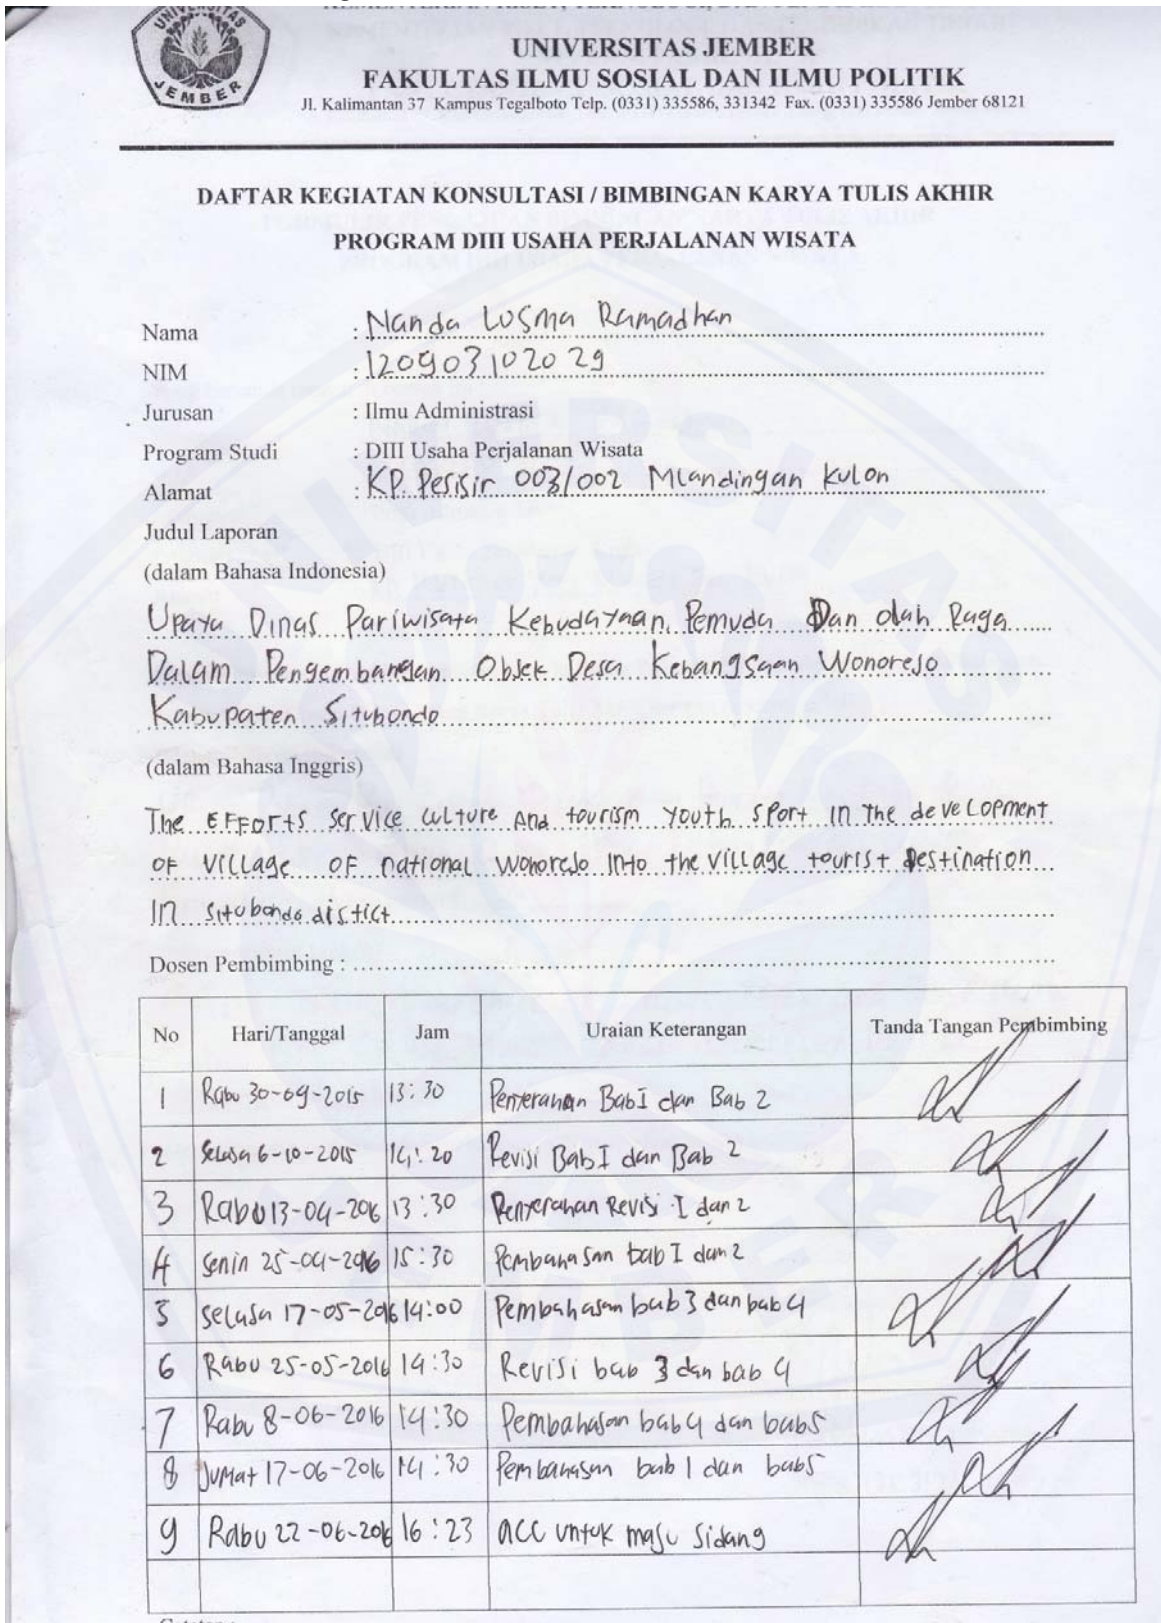 UNIVERSITAS
JEMBER
UNIVERSITAS JEMBER
FAKULTAS ILMU SOSIAL DAN ILMU POLITIK
Jl. Kalimantan 37 Kampus Tegalboto Telp. (0331) 335586, 331342 Fax. (0331) 335586 Jember 68121
DAFTAR KEGIATAN KONSULTASI / BIMBINGAN KARYA TULIS AKHIR
PROGRAM DIII USAHA PERJALANAN WISATA
Nama : Nanda Lusma Ramadhan
NIM : 120903102029
Jurusan : Ilmu Administrasi
Program Studi : DIII Usaha Perjalanan Wisata
Alamat : KP. Pesisir 003/002 Mlandingan Kulon
Judul Laporan
(dalam Bahasa Indonesia)
Upaya Dinas Pariwisata Kebudayaan, Pemuda Dan Olah Raga
Dalam Pengembangan Objek Desa Kebangsaan Wonorejo
Kabupaten Situbondo
(dalam Bahasa Inggris)
The Efforts service culture and tourism youth sport in the development
of village of national wonorejo into the village tourist destination
in situbondo distict
Dosen Pembimbing :
No Hari/Tanggal Jam Uraian Keterangan Tanda Tangan Pembimbing
1 Rabu 30-09-2015 13:30 Penyerahan Bab I dan Bab 2
2 Selasa 6-10-2015 14:20 Revisi Bab I dan Bab 2
3 Rabu 13-04-2016 13:30 Penyerahan Revisi I dan 2
4 Senin 25-04-2016 15:30 Pembahasan bab I dan 2
5 Selasa 17-05-2016 14:00 Pembahasan bab 3 dan bab 4
6 Rabu 25-05-2016 14:30 Revisi bab 3 dan bab 4
7 Rabu 8-06-2016 14:30 Pembahasan bab 4 dan bab 5
8 Jumat 17-06-2016 14:30 Pembahasan bab 1 dan bab 5
9 Rabu 22-06-2016 16:23 acc untuk maju sidang